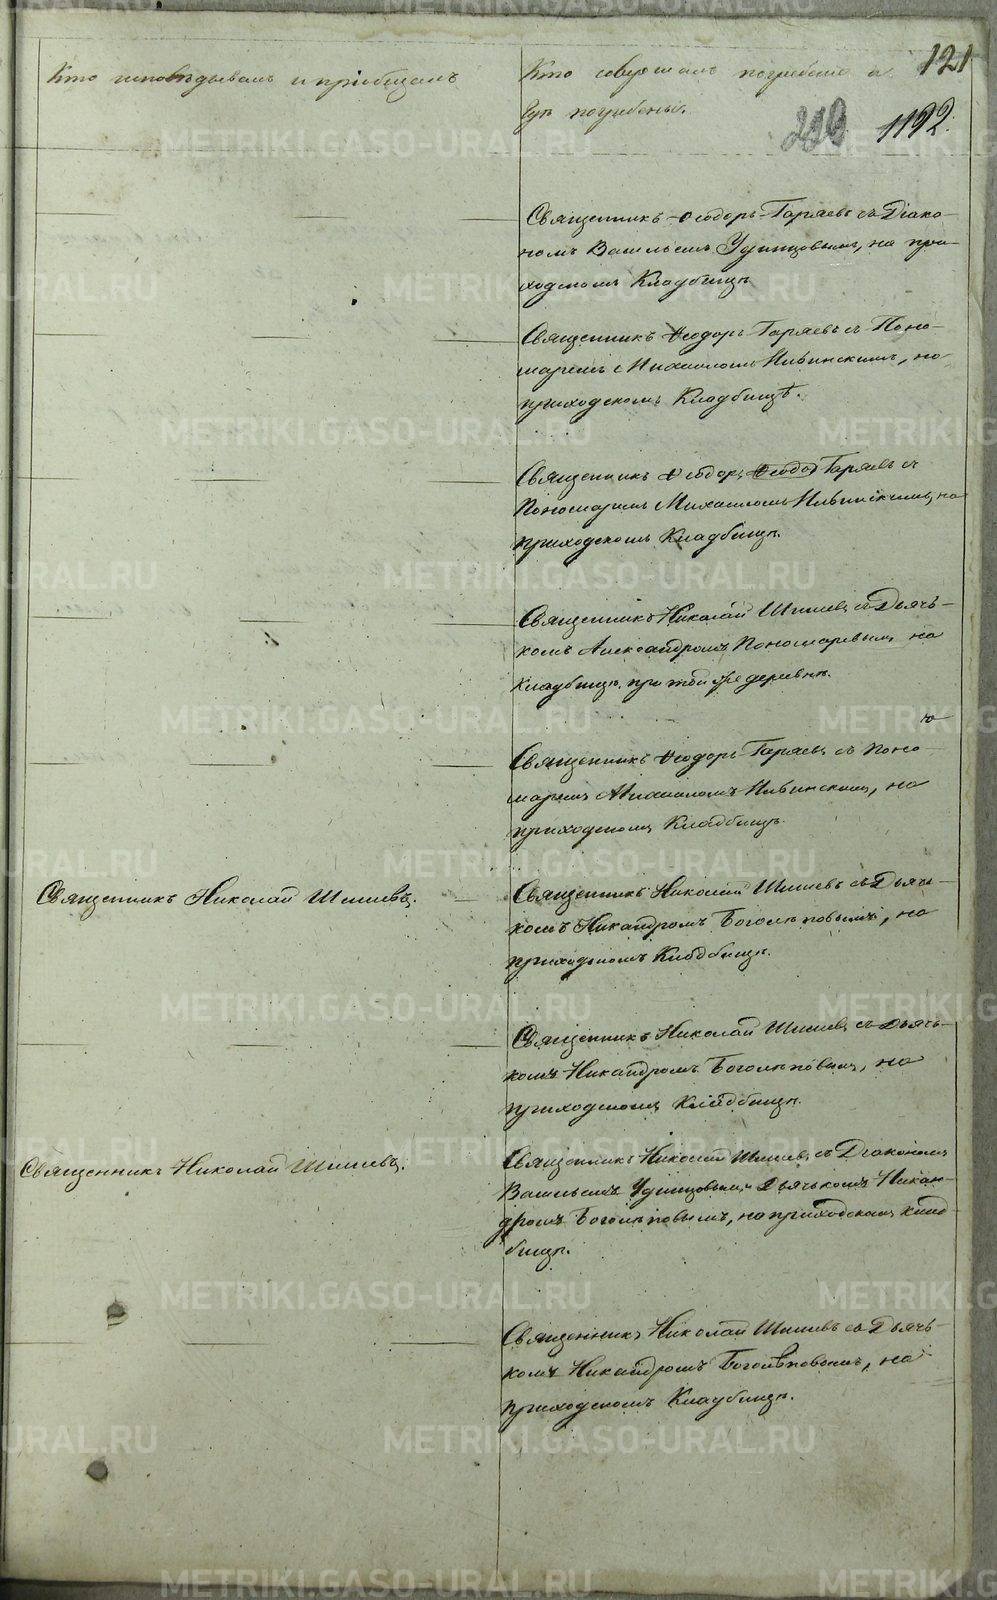 121
Кто исповѣдывалъ и пріобщалъ
Кто совершалъ погребеніе и
гдѣ погребены.
1192.
Священникъ Ѳеодоръ Гаряевъ съ Діако-
номъ Васильемъ Удинцовымъ, на при-
ходскомъ Кладбищѣ
Священникъ Ѳеодоръ Гаряевъ съ Поно-
маремъ Михаиломъ Ивинскимъ, на
приходскомъ Кладбищѣ.
Священникъ Ѳеодоръ Ѳеодо Гаряевъ съ
Пономаремъ Михаиломъ Ивинскимъ, на
приходскомъ Кладбищѣ.
Священникъ Николай Шишевъ съ Дьячь-
комъ Александромъ Пономаревымъ на
кладбищѣ при той же деревнѣ.
Священникъ Ѳеодоръ Гаряевъ съ Поно-
маремъ Михаиломъ Ивинскимъ, на
приходскомъ Кладбищѣ.
Священникъ Николай Шишевъ.
Священникъ Николай Шишевъ съ Дьячь-
комъ Никандромъ Боголѣповымъ, на
приходскомъ Кладбищѣ.
Священникъ Николай Шишевъ съ Дьячь-
комъ Никандромъ Боголѣповымъ, на
приходскомъ Кладбищѣ.
Священникъ Николай Шишевъ.
Священникъ Николай Шишевъ съ Діакономъ
Васильемъ Удинцовымъ и Дьячькомъ Никан-
дромъ Боголѣповымъ, на приходскомъ клад-
бищѣ.
Священникъ Николай Шишевъ съ Дьячь-
комъ Никандромъ Боголѣповымъ, на
приходскомъ Кладбищѣ.
METRIKI.GASO-URAL.RU